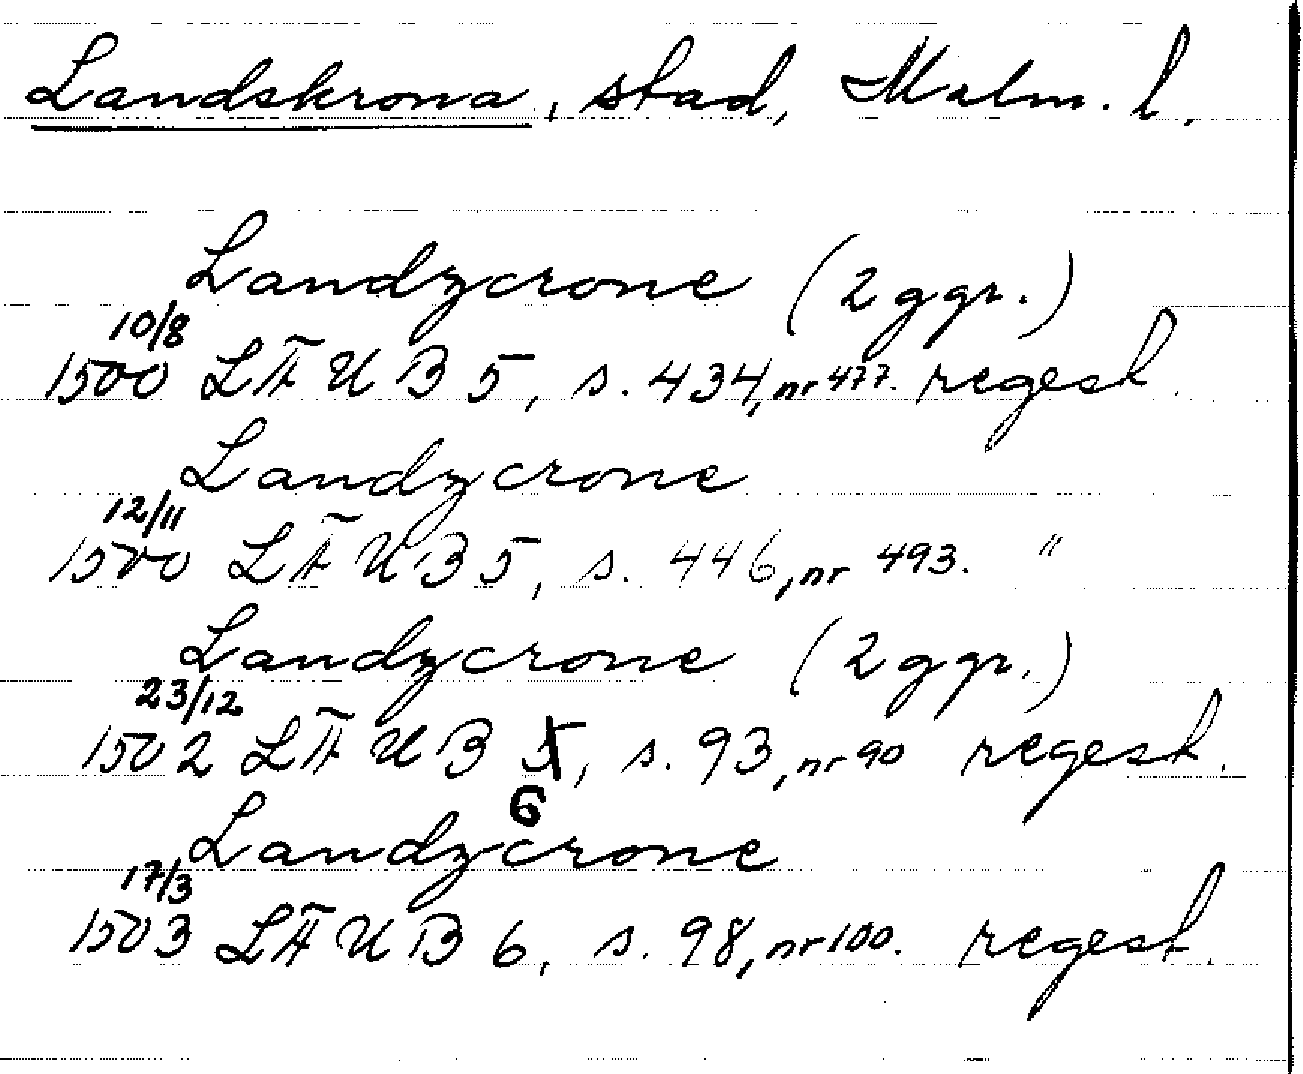 Landskrona, stad, Malm. l.
Landzcrone (2 ggr.)
10/8
1500 LÄUB 5, s. 434, nr 477. regest.
Landzcrone
12/11
1500 LÄUB 5, s. 446, nr 493. "
Landzcrone (2 ggr.)
23/12
1502 LÄUB 5, s. 93, nr 90 regest.
6
Landzcrone
17/3
1503 LÄUB 6, s. 98, nr 100. regest.